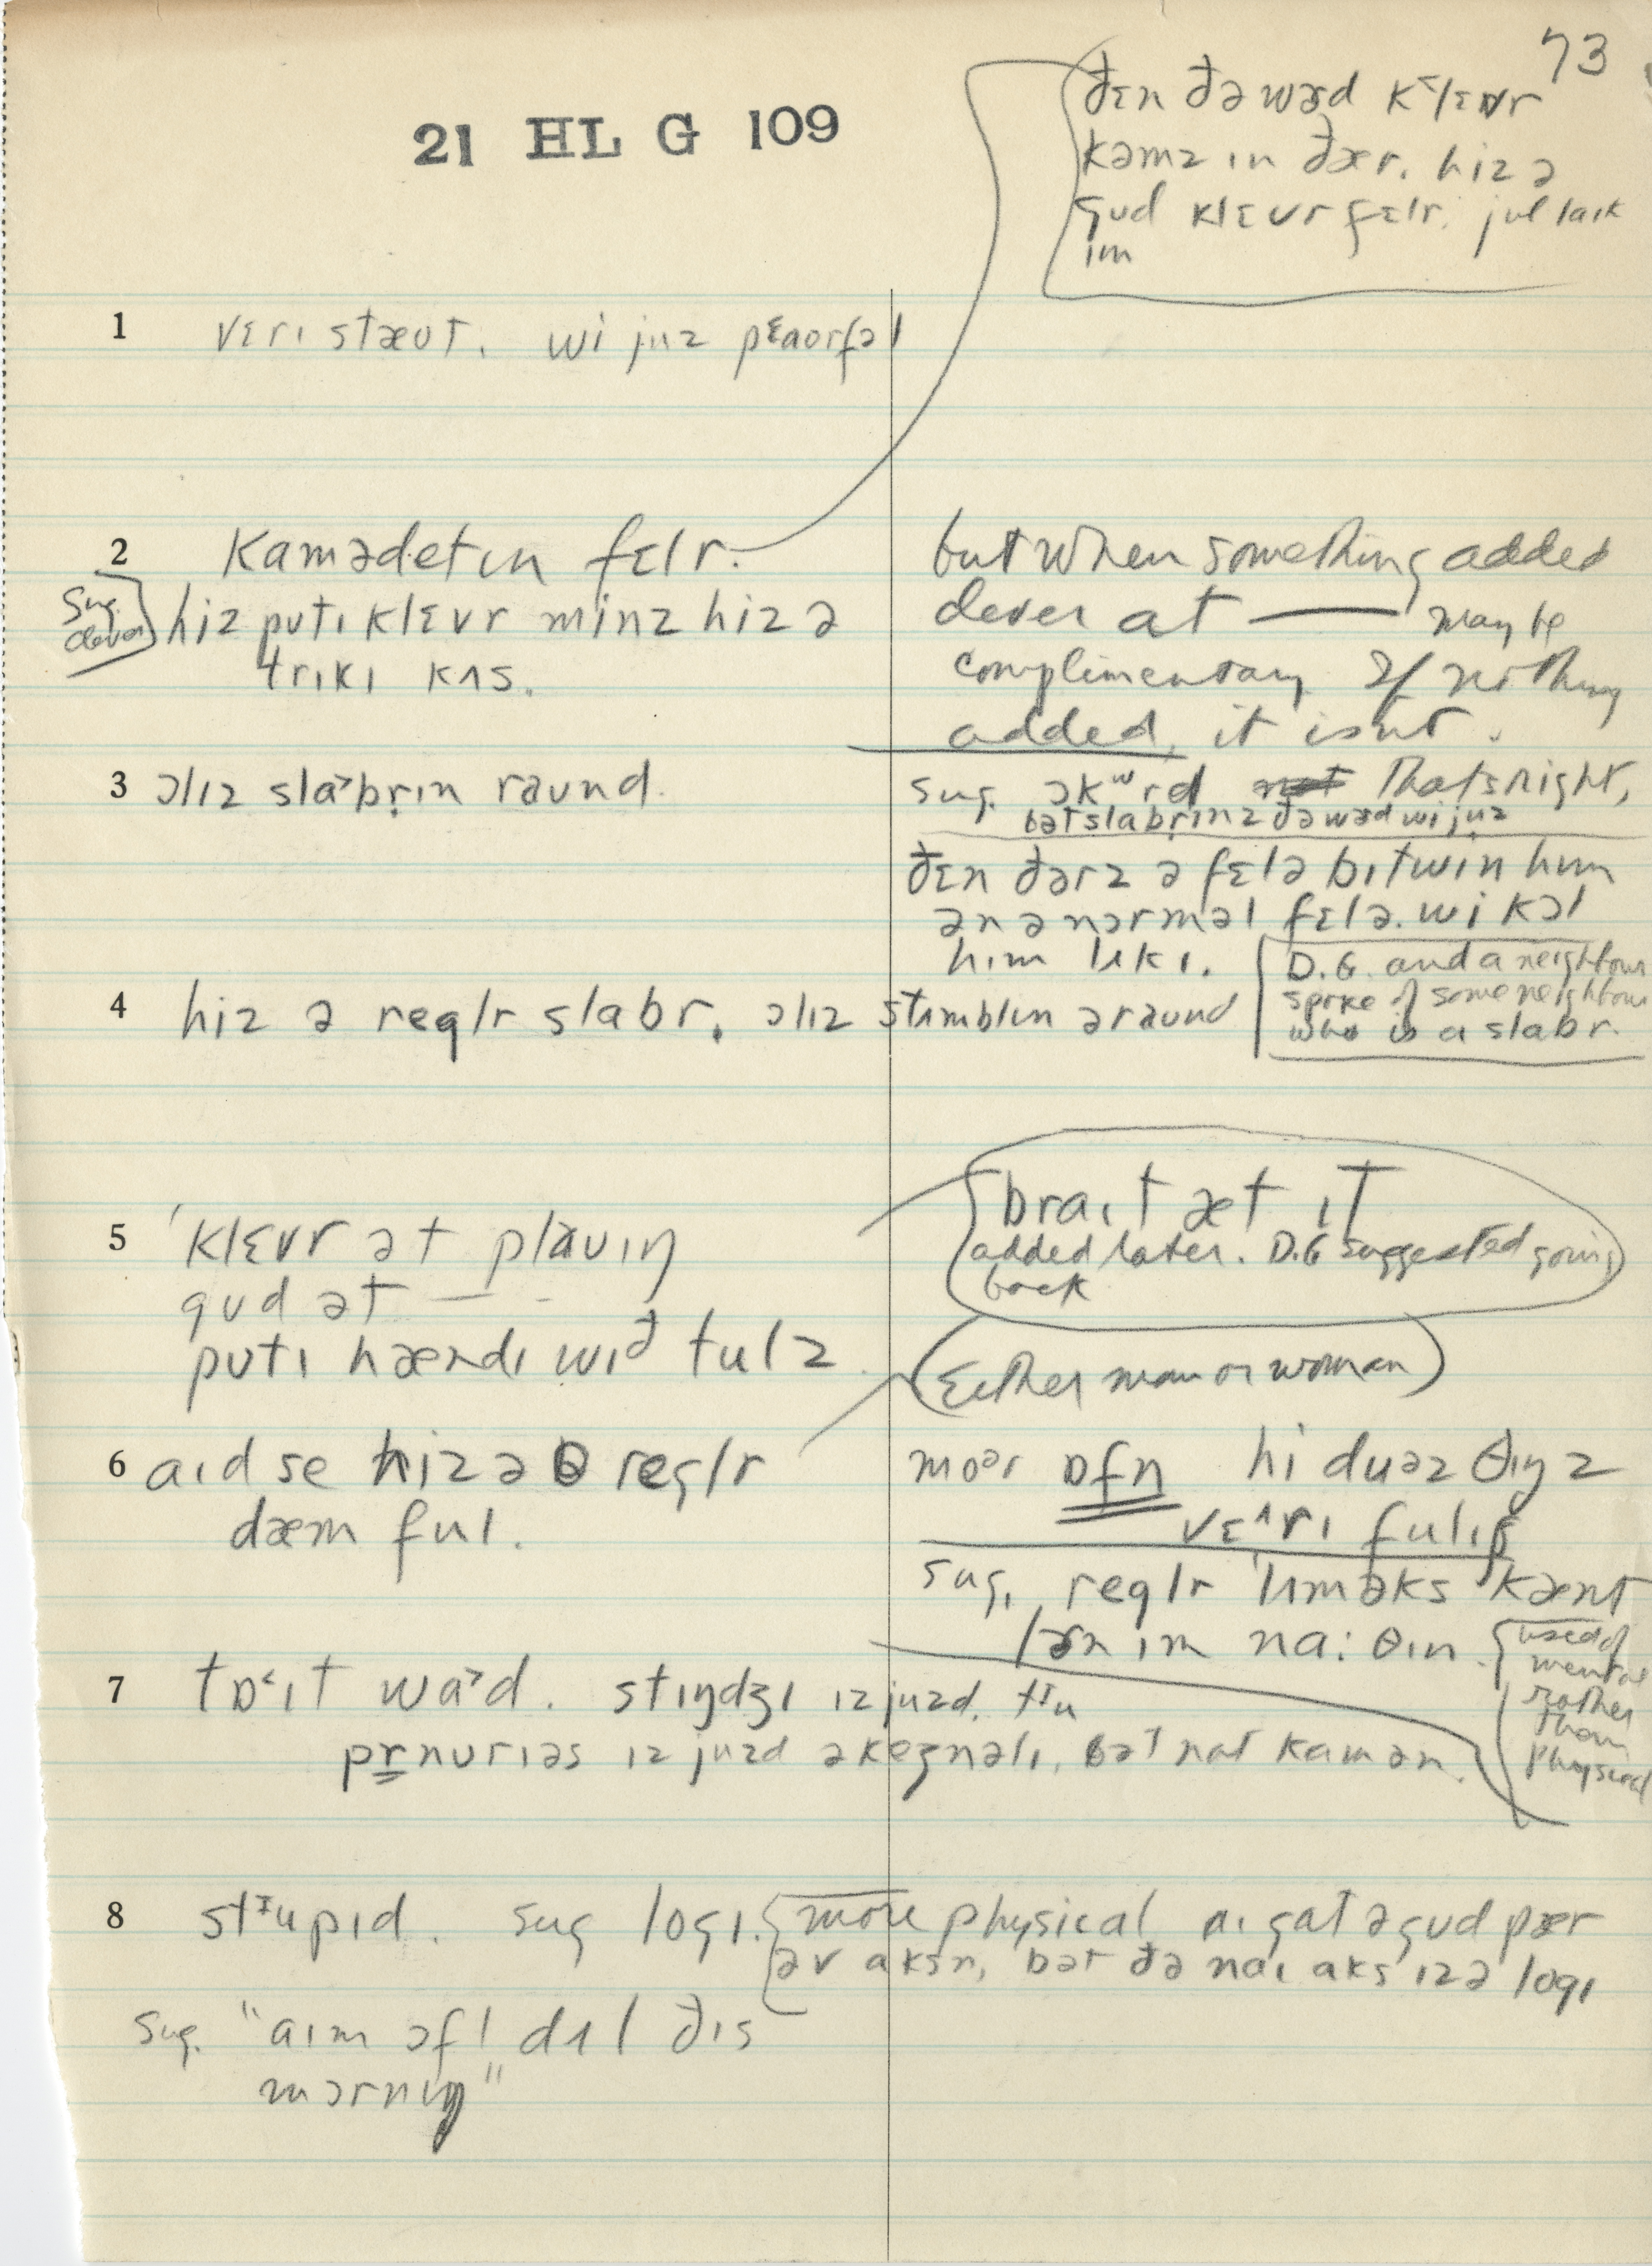 73
21 HL G 109
ðɛn ðə wɜd kɛlɛvr
kəmz ɪn ðær. hiz ə
gud klɛvr fɛlr. jul laɪk
ɪm
1 vɛrɪ stæʊt. wi juz pɛaʊrfəl
2 kamədetɪn fɛlr.
Sug. clever
hiz pʊtɪ klɛvr minz hiz ə
trɪkɪ kʌs.
but when something added
clever at — may be
complimentary If nothing
added, it isnt.
3 ɔlɪz slaˇbrɪn raʊnd.
sug. ɔkʷrd That's right,
bət slabrɪnz ðə wɜd wi juz
ðɛn ðərz ə fɛlə bɪtwin hɪm
ən ə nɔrməl fɛlə. wi kɔl
him lɪkɪ.
4 hiz ə reglr slabr. ɔlɪz stʌmblɪn əraʊnd
D.G. and a neighbour
spoke of some neighbour
who is a slabr.
5 klɛvr ət plaʊɪŋ
gʊd ət — -
pʊtɪ hændɪ wɪð tulz
braɪt æt ɪt
added later. D.G suggested going
back
(Either man or woman)
6 aɪd se hiz ə reglr
dæm ful.
moər ɒfn hi duəz θɪŋz
vɛˆrɪ fulɪʃ
sug. reglr lʌməks kænt
lɜrn ɪm na: θɪn.
used of
mental
rather
than
physical
7 tɒˈɪt waˇd. stɪŋdʒɪ ɪz juzd. tᶦu
pr̲nurɪəs ɪz juzd əkeʒnəlɪ, bət nat kamən.
8 stᶦupɪd. sug logɪ. more physical aɪ gat ə gʊd pær
əv aksn, bət ðə naɪ aks ɪz ə logɪ
Sug. "aɪm ɔfl dʌl ðɪs
mɔrnɪŋ"